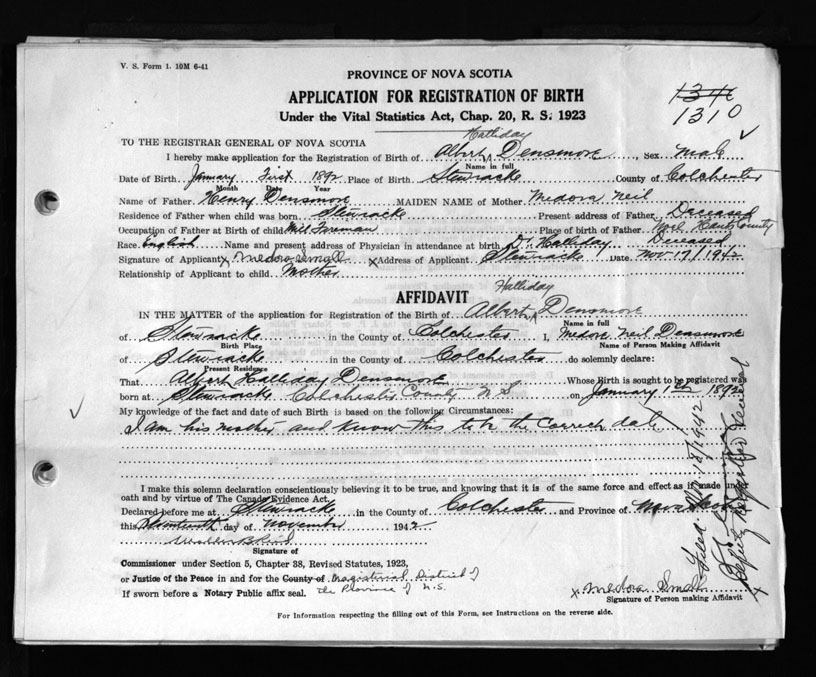 V. S. Form 1. 10M 6-41
PROVINCE OF NOVA SCOTIA
APPLICATION FOR REGISTRATION OF BIRTH
Under the Vital Statistics Act, Chap. 20, R. S. 1923
1346
1310
TO THE REGISTRAR GENERAL OF NOVA SCOTIA
Halliday
I hereby make application for the Registration of Birth of Albert Densmore, Sex Male
Name in full
Date of Birth January First 1892 Place of Birth Stewiacke County of Colchester
Month Date Year
Name of Father Henry Densmore MAIDEN NAME of Mother Medora Neil
Residence of Father when child was born Stewiacke Present address of Father Deceased
Occupation of Father at Birth of child Mill Foreman Place of birth of Father Noel Hants County
Race English Name and present address of Physician in attendance at birth Dr Halliday Deceased
Signature of Applicant x Medora Small x Address of Applicant Stewiacke Date Nov 17/1942
Relationship of Applicant to child Mother
AFFIDAVIT
Halliday
IN THE MATTER of the application for Registration of the Birth of Albert Densmore
Name in full
of Stewiacke in the County of Colchester I, Medora Neil Densmore
Birth Place Name of Person Making Affidavit
of Stewiacke in the County of Colchester do solemnly declare:
Present Residence
That Albert Halliday Densmore Whose Birth is sought to be registered was
born at Stewiacke Colchester County N S on January 1st 1892
My knowledge of the fact and date of such Birth is based on the following Circumstances:
I am his mother and know this to be the Correct date
I make this solemn declaration conscientiously believing it to be true, and knowing that it is of the same force and effect as if made under
oath and by virtue of The Canada Evidence Act.
Declared before me at Stewiacke in the County of Colchester and Province of Nova Scotia
this Seventeenth day of November 1942
Signature of
Commissioner under Section 5, Chapter 38, Revised Statutes, 1923,
or Justice of the Peace in and for the County of Magisterial District of
If sworn before a Notary Public affix seal. the Province of N.S.
x Medora Small x
Signature of Person making Affidavit
For Information respecting the filling out of this Form, see Instructions on the reverse side.
Filed: 18/1942
Deputy Registrar General